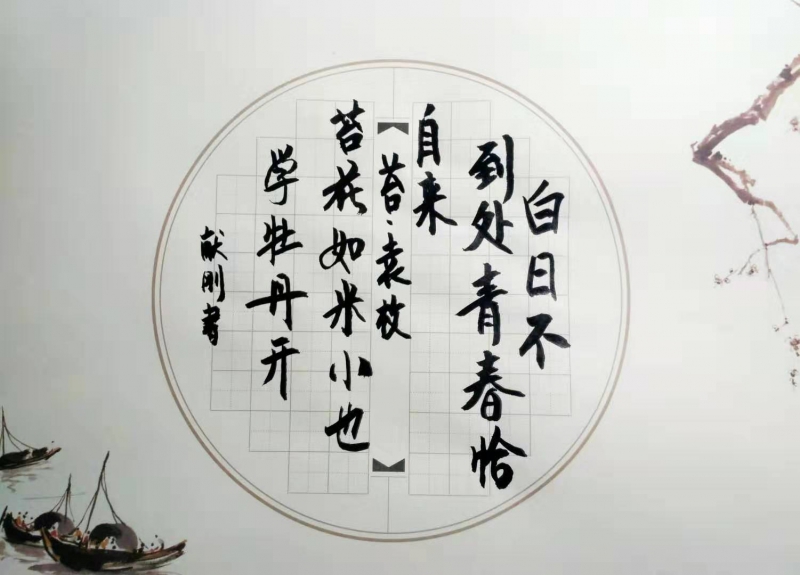 白日不
到处青春恰
自来
苔、袁枚
苔花如米小也
学牡丹开
献刚书